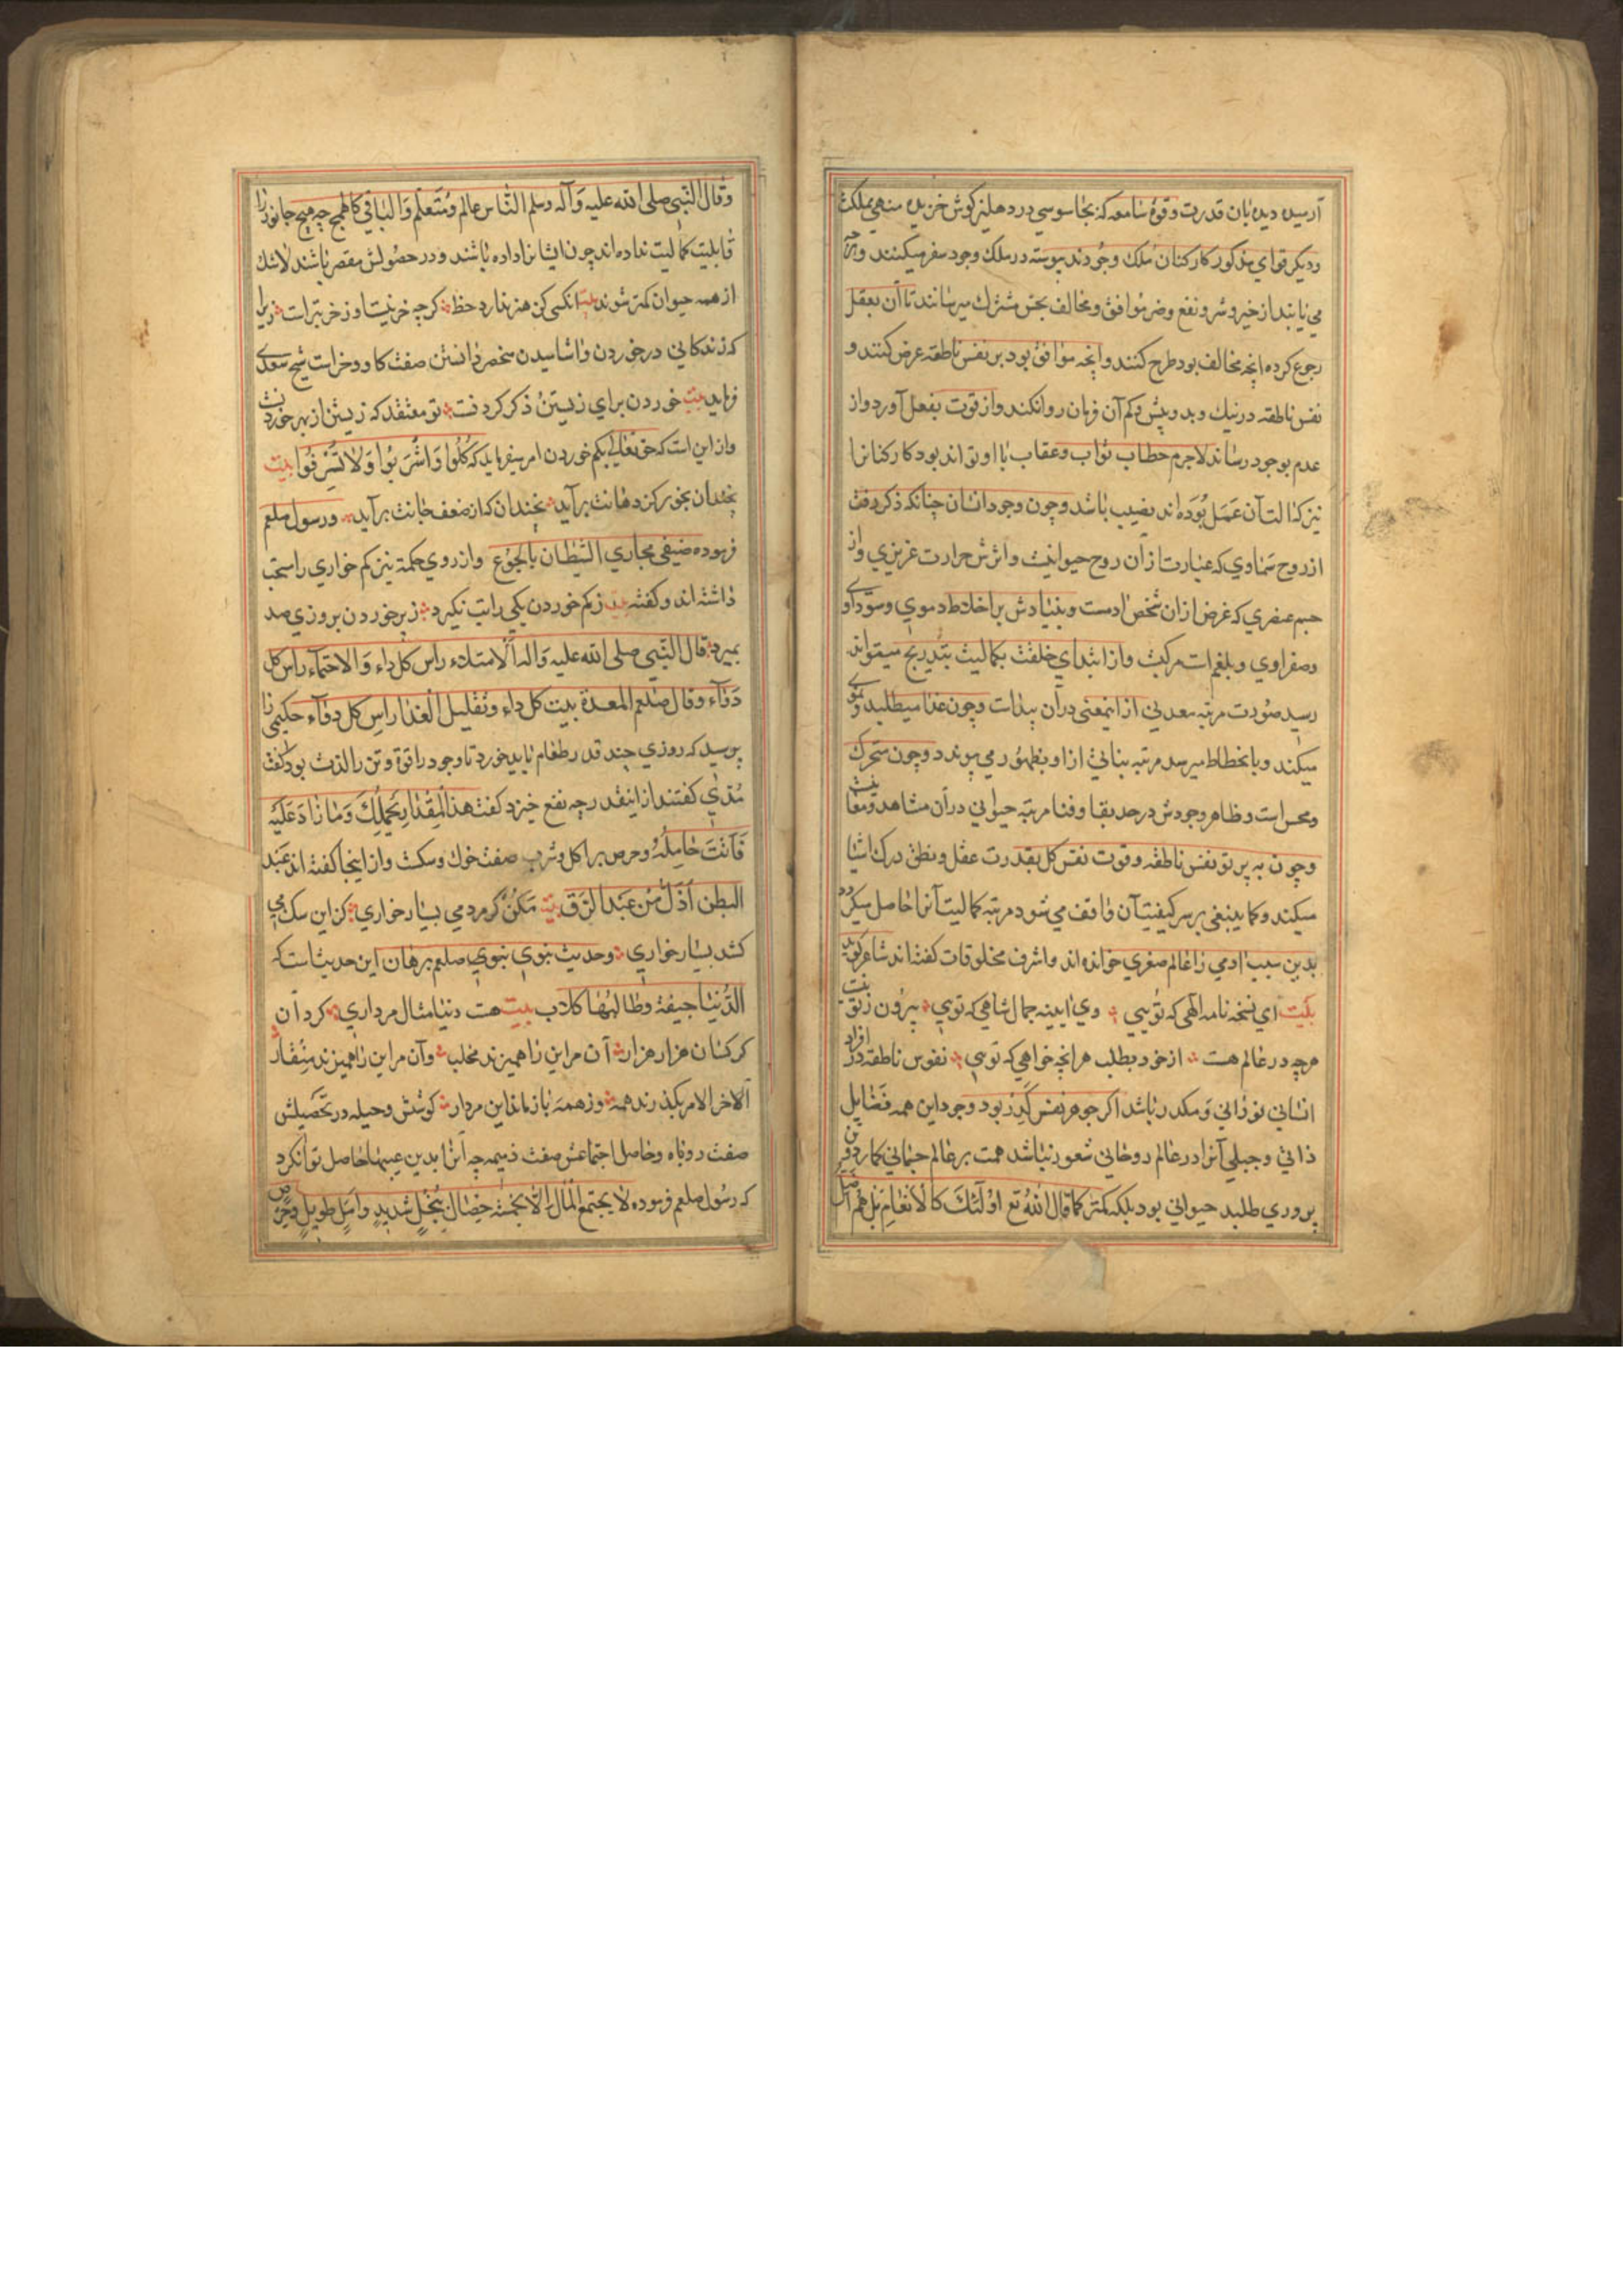 آرسیده دیده بان قدرت وقوهٔ سامعه که بجاسوسی در دهلیز کوش خزیده منهی مملکت
ودیکر قوای مذکور کارکنان ملک وجودند پیوسته در ملک وجود سفر میکنند و
می یابند از خیر و شر و نفع و ضر موافق و مخالف بحس مشترک میرسانند تا آن بعقل
رجوع کرده انچه مخالف بود طرح کنند و انچه موافق بود بر نفس ناطقه عرض کنند و
نفس ناطقه در نیک و بد و بیش و کم آن فرمان روانکند و از قوت بفعل آورد و از
عدم بوجود رساند لاجرم خطاب ثواب وعقاب با او تواند بود کارکنانرا
نیز که الت آن عمل بوده اند نصیب باشد و چون وجود انسان چنانکه ذکر رفت
از روح سماوی که عبارت از آن روح حیوانیت و اثرش حرارت غریزی و از
جسم عنصری که غرض از ان شخص ادمست و بنیادش بر اخلاط دموی و سوداوی
وصفراوی و بلغم است مرکبت و از ابتدای خلقت بکمالیت بتدریج میتواند
رسید صورت مرتبه معدنی از اینمعنی در آن پیداست و چون غذا میطلبد و نموی
میکند و با نحطاط میرسد مرتبه نباتی از او بظهور می پیوندد و چون متحرک
ومحس است و ظاهر وجودش در حد بقا و فنا مرتبه حیوانی در آن مشاهد و معاینست
وچون به پرتو نفس ناطقه وقوت نفس کل بقدرت عقل و نطق درک اشیا
میکند و کما ینبغی بر سر کیفیت آن واقف می شود مرتبه کمالیت آنرا حاصل میکردد
بدین سبب ادمی را عالم صغری خوانده اند و اشرف مخلوقات کفته اند شاعر کوید
بیت ای نسخه نامه الهی که تویی وی اینه جمال شاهی که تویی بیرون ز تو نیست
هرچه در عالم هست از خود بطلب هر انچه خواهی که تویی نفوس ناطقه در افراد
انسانی نورانی و مکدر باشد اکر جوهر نفس کدر بود وجود این همه فضایل
ذاتی و جبلی آنرا در عالم روحانی شعور نباشد همت بر عالم جسمانی کمارد و
پروری طلبد حیوانی بود بلکه کمتر کما قال الله تع اولئک کالانعام بل هم اضل
وقال النبی صلی الله علیه وآله وسلم الناس عالم ومتعلم والباقی کالهمج چه هیچ جانور را
قابلیت کمالیت نداده اند چون ایشانرا داده باشند و در حصولش مقصر باشند لاشک
از همه حیوان کمتر شوند بیت انکس کز هنر ندارد حظ کرچه خر نیست او ز خر بترست زیرا
که زندکانی در خوردن واشامیدن منحصر دانستن صفت کاو و خراست شیخ سعدی
فرماید بیت خوردن برای زیستن و ذکر کردنست تو معتقد که زیستن از بهر خوردنست
واز این است که حق تعالی بکم خوردن امر میفرماید که کلوا واشربوا ولا تسرفوا بیت
نچندان بخور کز دهانت برآید نچندان که از ضعف جانت برآید ورسول صلعم
فرموده ضیقی مجاری الشیطان بالجوع وازروی حکمة نیز کم خواری را مستحب
داشته اند وکفته بیت زکم خوردن یکی راتب نکیرد زپر خوردن بروزی صد
بمیرد قال النبی صلی الله علیه واله الامتلاء راس کل داء والاحتماء راس کل
دواء وقال صلعم المعدة بیت کل داء وتقلیل الغذا راس کل دواء حکیمی را
پرسید که روزی چند قدر طعام باید خورد تا وجود را قوة و تن را لذت بود کفت
مدی کفتند از اینقدر چه نفع خیزد کفت هذا المقدار یحملک وما زاد علیه
فانت حامله وحرص بر اکل وشرب صفت خوک وسکست واز اینجا کفته اند عبد
البطن اذل من عبد الرق بیت مکن کر مردمی بسیار خواری کز این سک می
کشد بسیار خواری وحدیث نبوی نبوی صلعم برهان این حدیث است که
الدنیا جیفة وطالبها کلاب بیت هست دنیا مثال مرداری کرد آن
کرکسان هزار هزار آن مر این را همیزند مخلب وآن مر این را همیزند منقار
آلاخر الامر بکذرند همه وز همه باز ماند این مردار کوشش وحیله در تحصیلش
صفت روباه وحاصل اجتماعش صفت ذمیمه چه آنرا بدین عیبها حاصل توان کرد
که رسول صلعم فرموده لا یجتمع المال الا بخمسة خصال بخل شدید وامل طویل وحرص